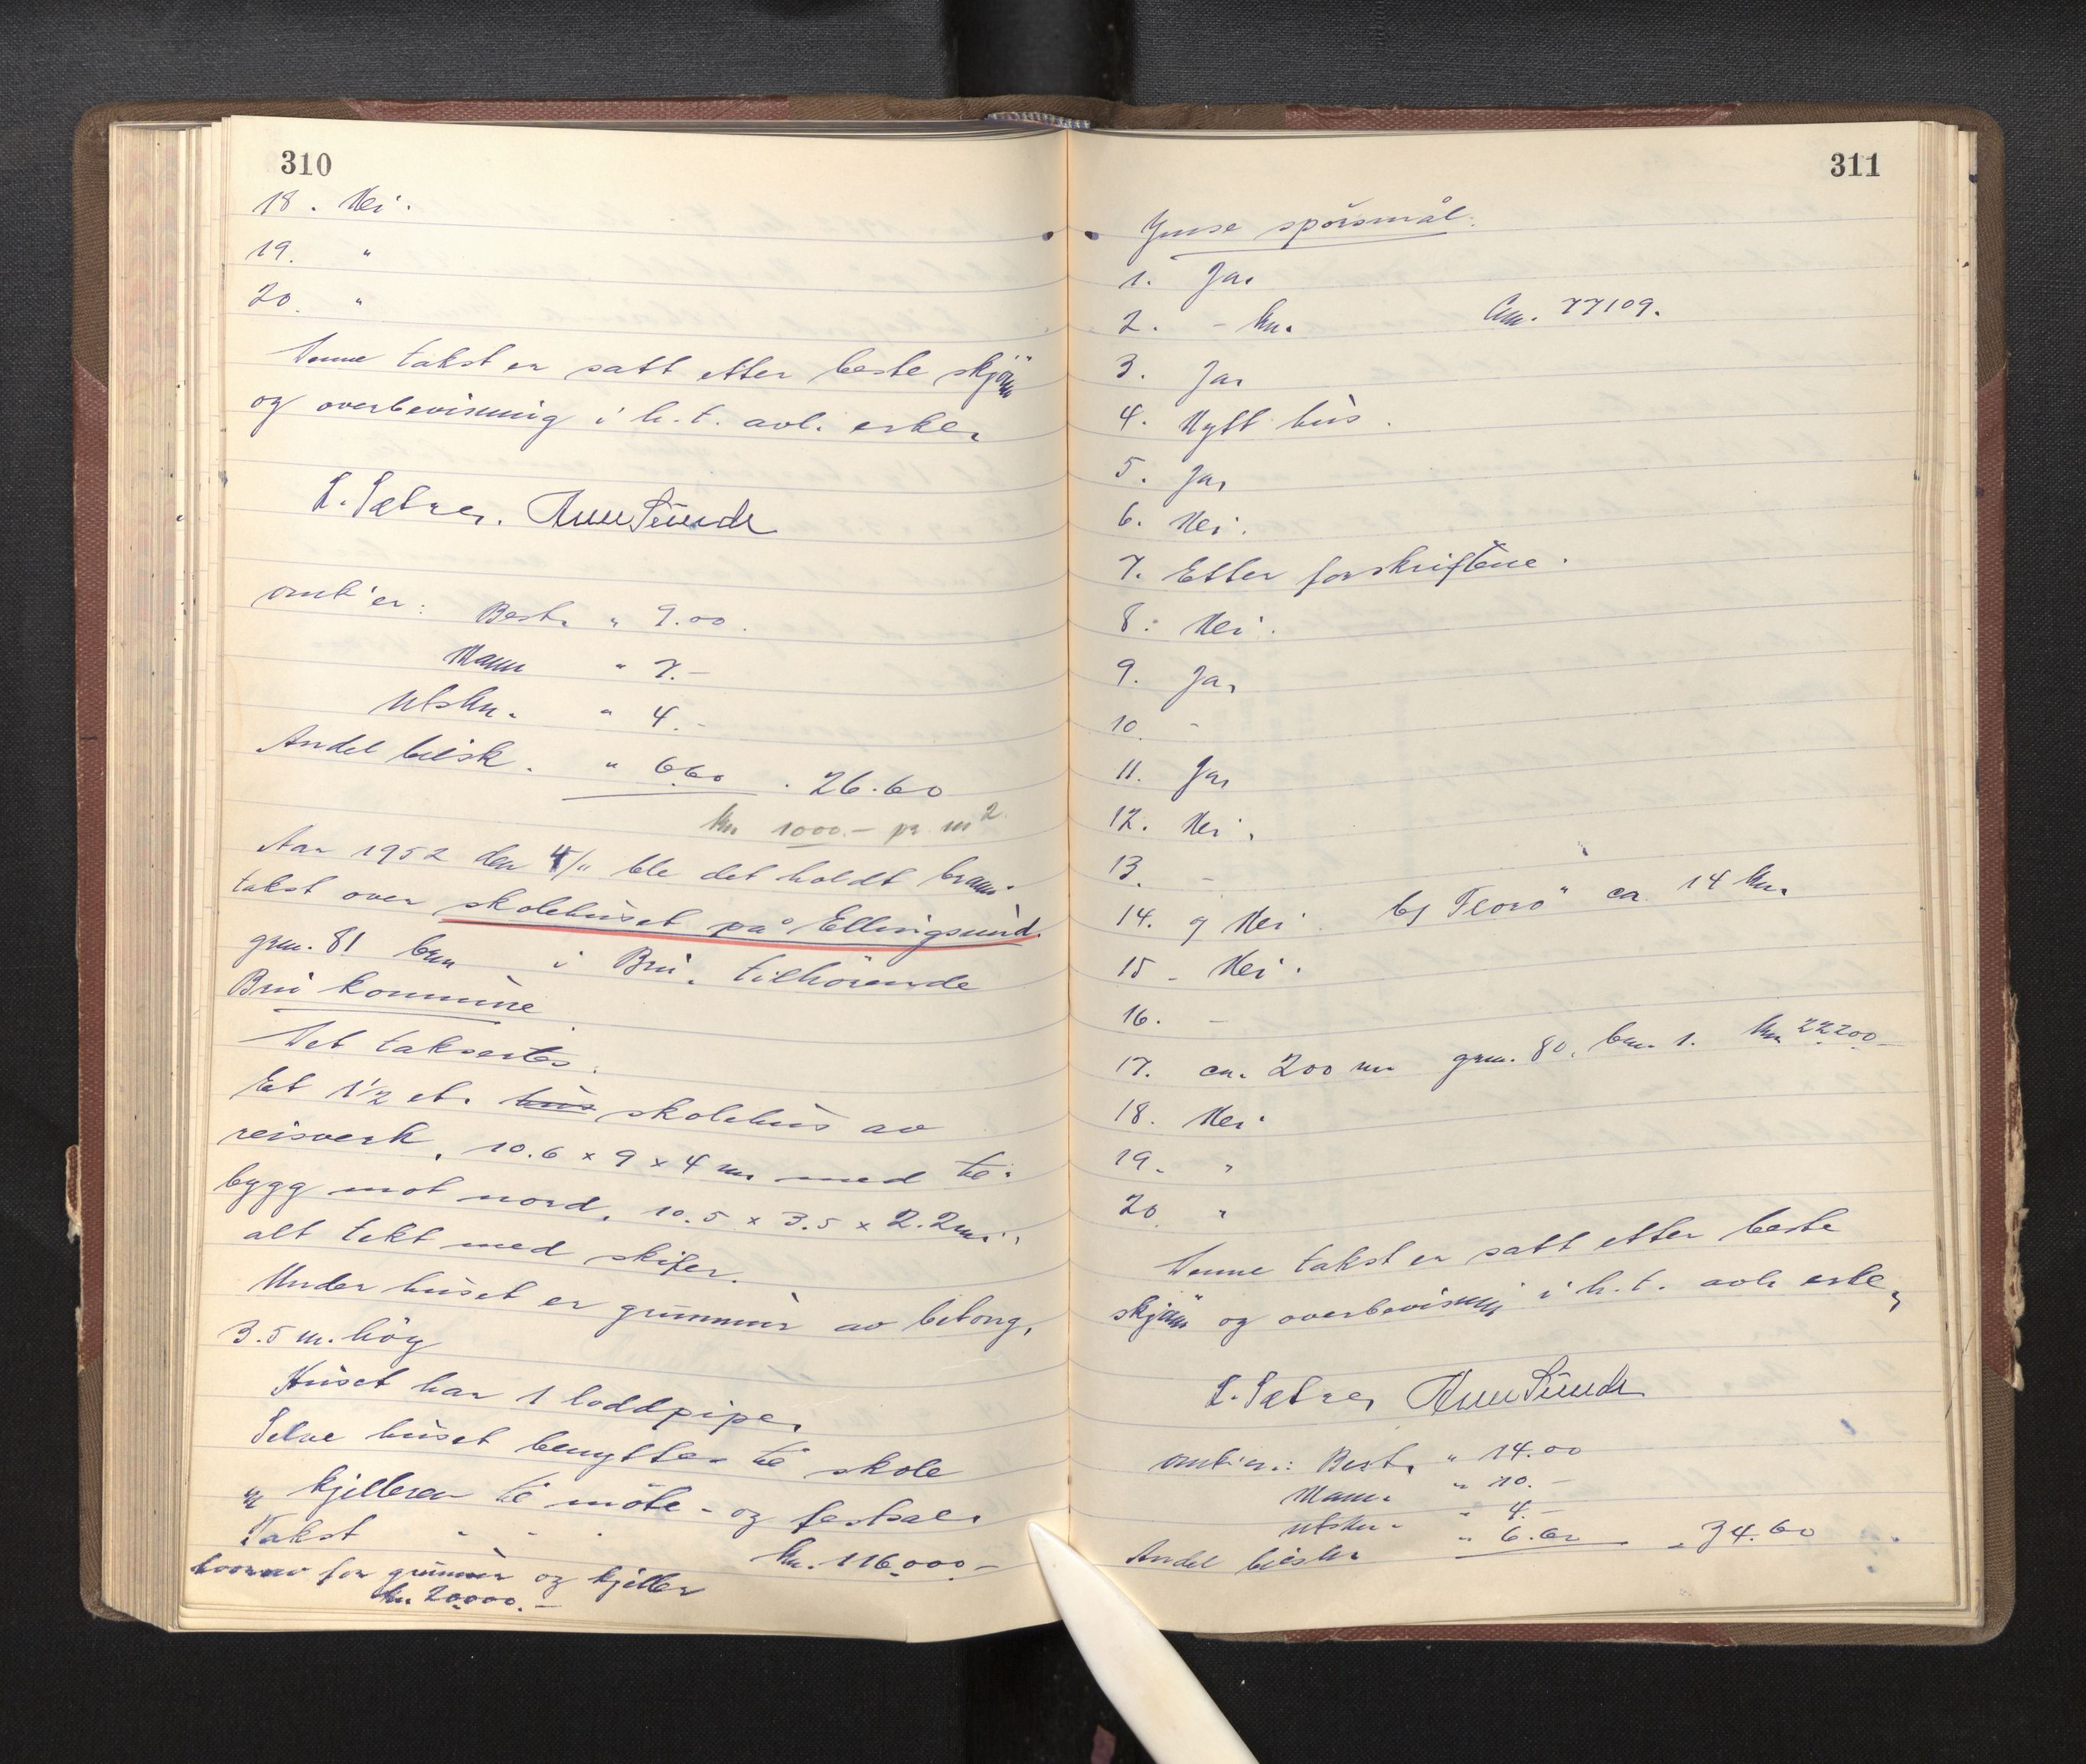 310
18. Nei.
19. "
20. "
Denne takst er satt etter beste skjøn
og overbevisning i h.t. avl. erkl.
L. Sætre.
omk'er: Best. " 9.00.
Mann " 7.-
Utskr. " 4.-
Andel bilsk. " 6.60 . 26.60
kr 1000.- pr m2.
Aar 1952 den 4/11 ble det holdt brann-
takst over skolehuset på Ellingsund.
grn. 81 brn i Bru. tilhörende
Bru kommune
Det taksertes.
Et 1 1/2 et. hus skolehus av
reisverk, 10.6 x 9 x 4 m. med til-
bygg mot nord, 10.5 x 3.5 x 2.2 m.
alt tekt med skifer.
Under huset er grunnmur av betong,
3.5 m. höy
Huset har 1 loddpipe.
Selve huset benyttes til skole
kjelleren til möte- og festsal.
Takst " " . kr. 116.000.-
hvorav for grunnmur og kjeller
kr. 20.000.-
311
Ymse spörsmål.
1. Ja.
2. - kr. An. 77109.
3. Ja.
4. Nytt hus.
5. Ja.
6. Nei.
7. Etter forskriftene.
8. Nei.
9. Ja.
10 -
11. Ja.
12. Nei.
13. -
14. Nei ca. 14 km.
15. Nei.
16. -
17. ca. 200 m grn. 80, brn. 1. kr 22200.-
18. Nei.
19. "
20. "
Denne takst er satt etter beste
skjøn og overbevisning i h.t. avl. erkl.
L. Sætre.
omk'er.: Best. " 14.00
Mann. " 10.-
Utskr. " 4.-
Andel bilsk. " 6.60 - 34.60